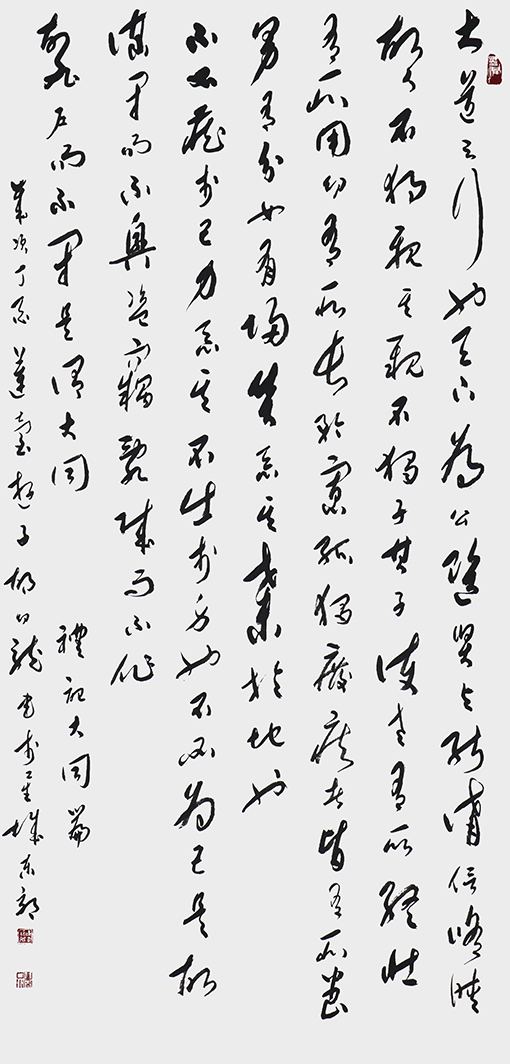 大道之行也天下為公選賢与能講信修睦
故人不獨親其親不獨子其子使老有所終壯
有所用幼有所長矜寡孤獨廢疾者皆有所養
男有分女有歸貨惡其棄於地也
不必藏於己力惡其不出於身也不必為己是故
謀閉而不興盜竊亂賊而不作
故外戶而不閉是謂大同
禮記大同篇
歲次丁亥蓮子胡日龍書於星城東郭